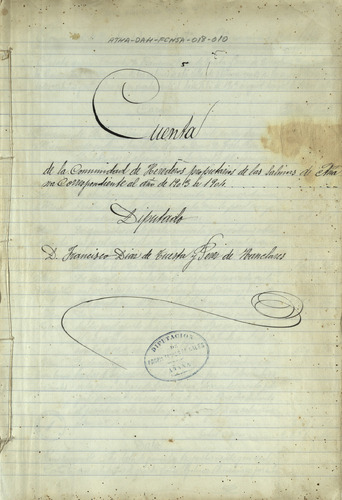 ATHA-DAH-FCHSA-018-010
Cuenta
de la Comunidad de Herederos propietarios de las Salinas de Aña
na Correspondiente al año de 1903 à 1904
Diputado
D. Francisco Diaz de Tuesta y Perez de Nanclares
DIPUTACION
DE
AÑANA